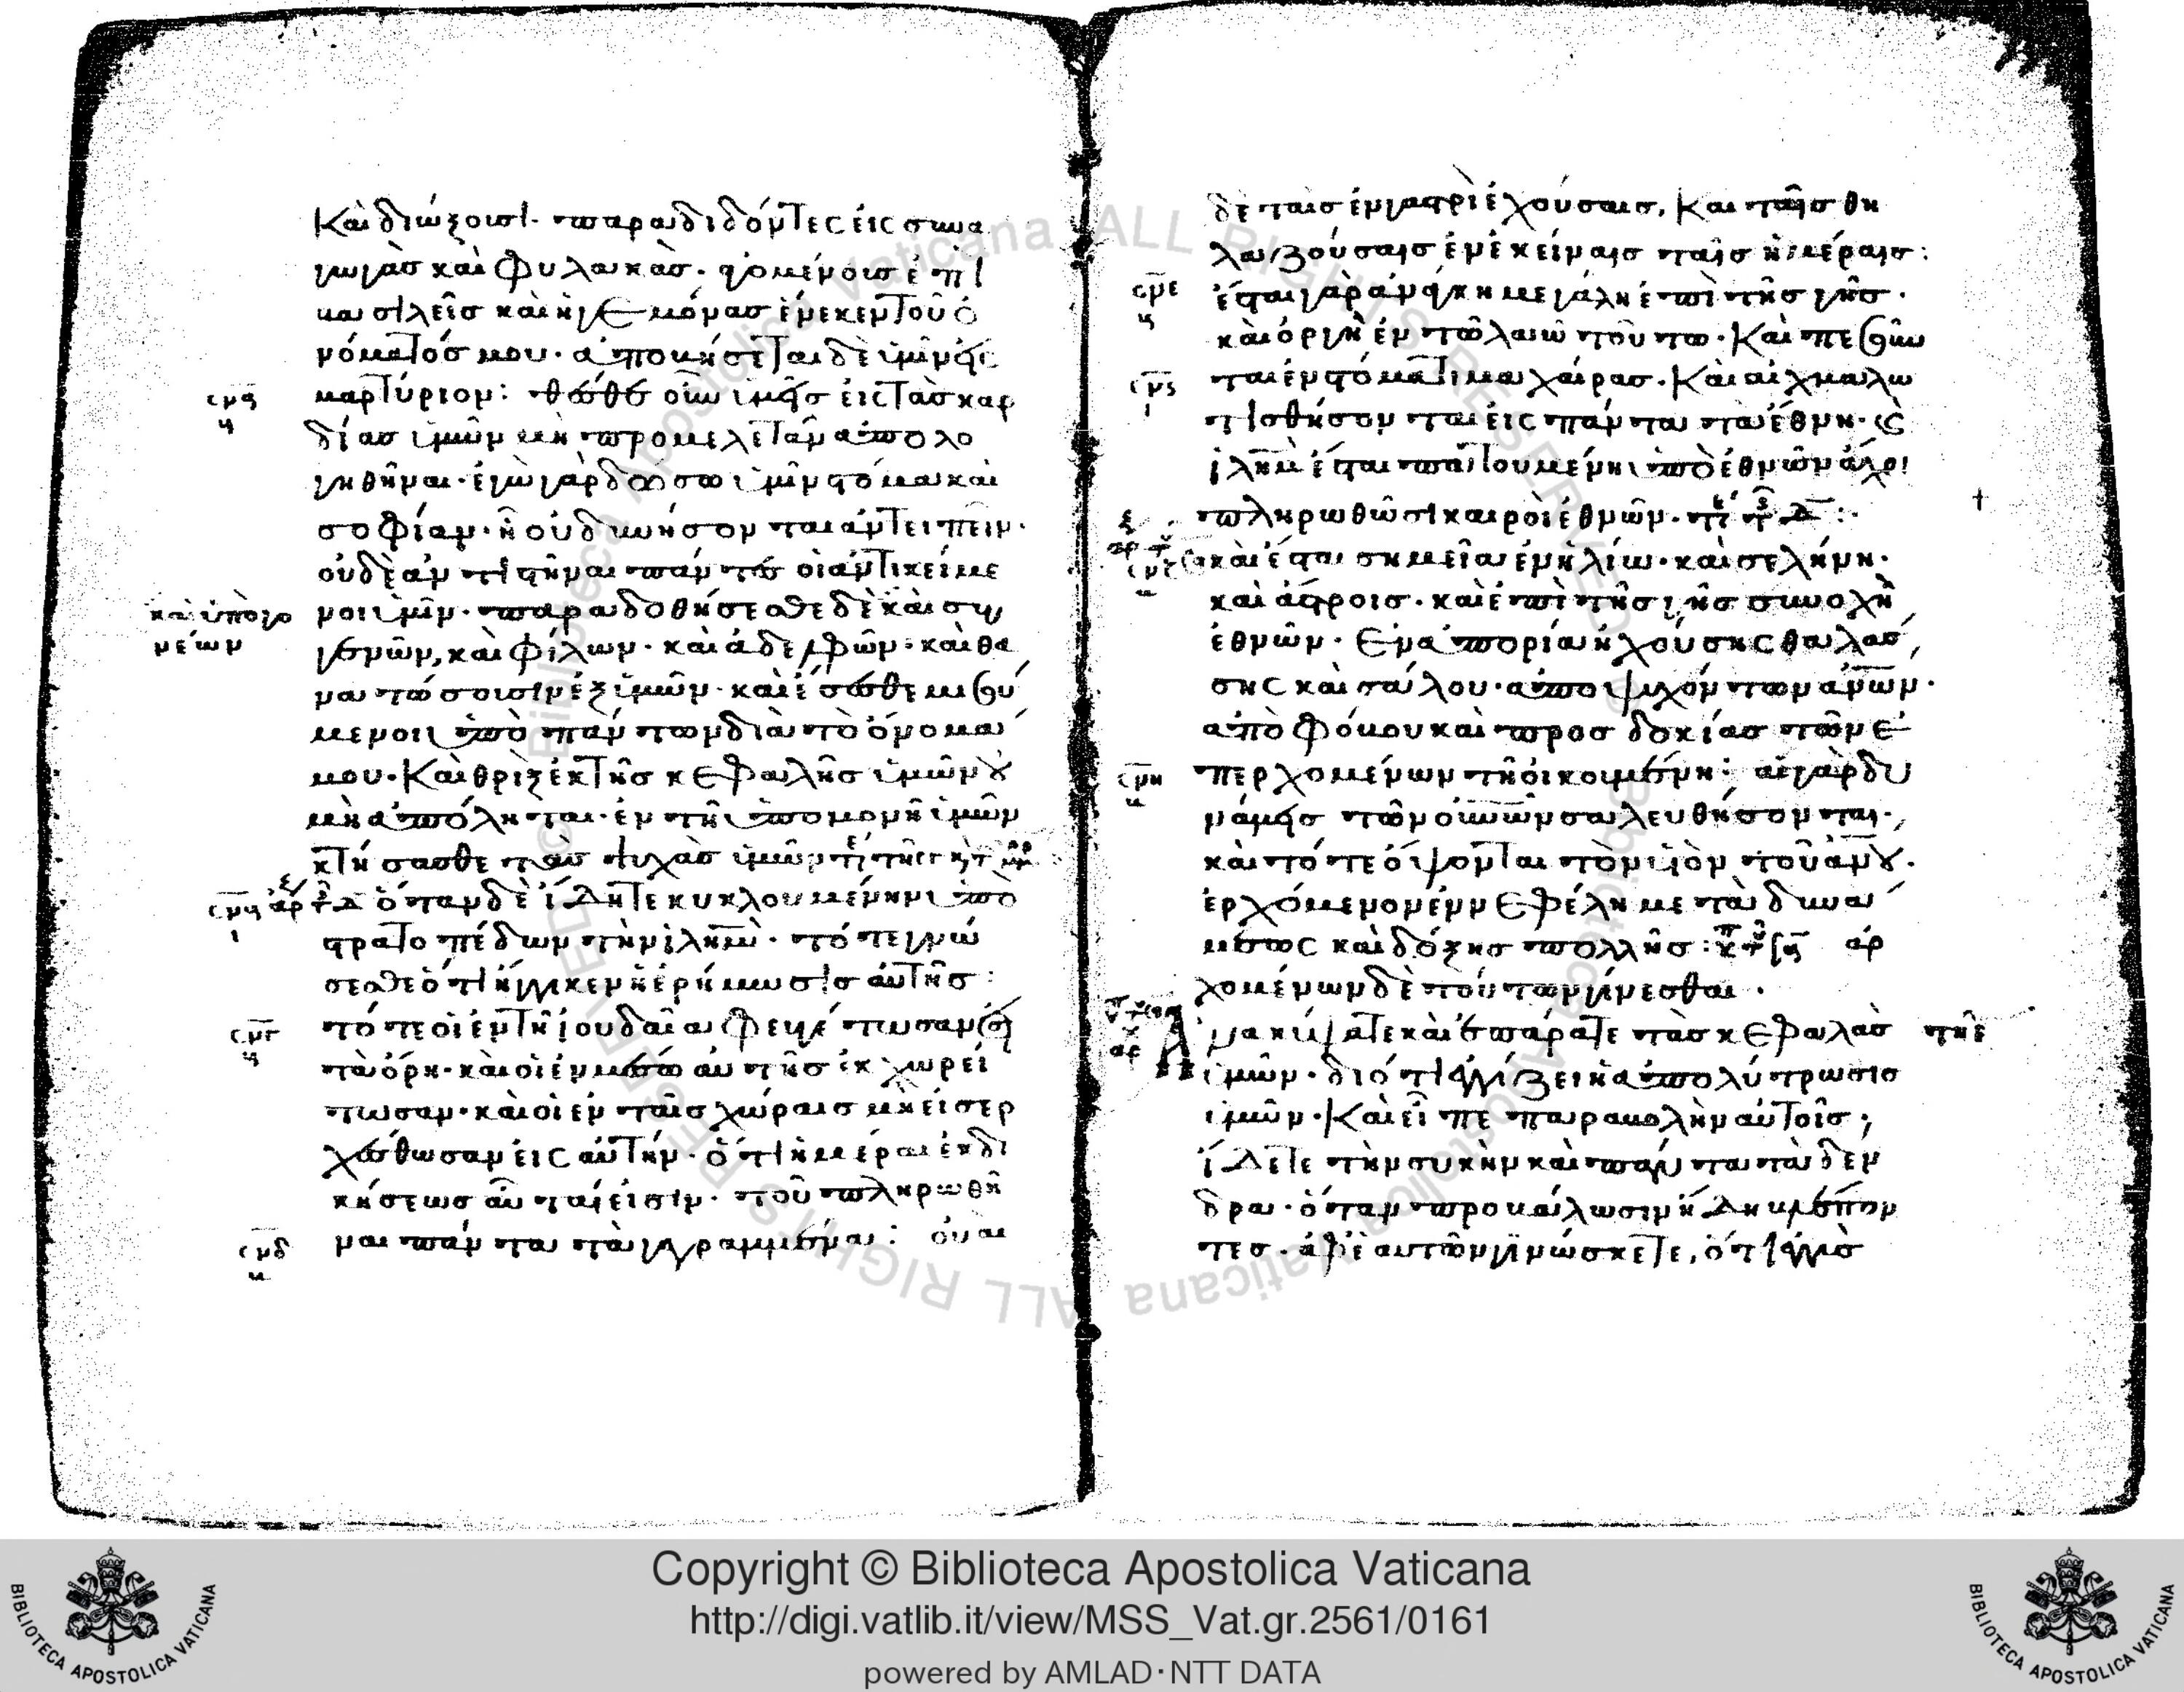 Καὶ διώξουσι· παραδιδόντες εἰς συνα
γωγὰσ καὶ φυλακὰσ· ἀγομένουσ ἐπὶ
βασιλεῖσ καὶ ἡγεμόνασ ἕνεκεν τοῦ ὀ
νόματός μου· ἀποβήσεται δὲ ὑμῖν εἰς
μαρτύριον: θέσθε οὖν ὑμεῖσ εἰς τὰσ καρ
δίασ ὑμῶν μὴ προμελετᾶν ἀπολο
γηθῆναι· ἐγὼ γὰρ δώσω ὑμῖν στόμα καὶ
σοφίαν· ἧ οὐ δυνήσονται ἀντειπεῖν·
οὐδὲ ἀντιστῆναι πάντες οἱ ἀντικείμε
καὶ ὑπὸ γο
νέων
νοι ὑμῖν· παραδοθήσεσθε δὲ καὶ συγ
γενῶν, καὶ φίλων· καὶ ἀδελφῶν· καὶ θα
νατώσουσιν ἐξ ὑμῶν· καὶ ἔσεσθε μισού
μενοι ὑπὸ πάντων διὰ τὸ ὄνομα
μου· Καὶ θρὶξ ἐκ τῆσ κεφαλῆσ ὑμῶν οὐ
μὴ ἀπόληται· ἐν τῆ ὑπομονῆ ὑμῶν
κτήσασθε τὰσ ψυχὰσ ὑμῶν
ὅταν δὲ ἴδητε κυκλουμένην ὑπὸ
στρατοπέδων τὴν ἱλημ· τότε γνώ
σεσθε ὅτι ἤγγικεν ἡ ἐρήμωσισ αὐτῆσ:
σμγ τότε οἱ ἐν τῆ ἰουδαία φευγέτωσαν εἰς
τὰ ὄρη· καὶ οἱ ἐν μέσω αὐτῆσ ἐκχωρεί
τωσαν· καὶ οἱ ἐν ταῖσ χώραισ μὴ εἰσερ
χέσθωσαν εἰς αὐτήν· ὅτι ἡμέραι ἐκδι
κήσεωσ αὗται εἰσίν· τοῦ πληρωθῆ
σμδ ναι πάντα τὰ γεγραμμένα: οὐαι
δὲ ταῖσ ἐν γαστρὶ ἐχούσαισ, Και ταῖσ θη
λαζούσαισ ἐν ἐκείναισ ταῖσ ἡμέραισ:
σμε ἔσται γὰρ ἀνάγκη μεγάλη ἐπὶ τῆσ γῆσ·
καὶ ὀργὴ ἐν τῶ λαῶ τούτω· Καὶ πεσοῦν
σμς ται ἐν στόματι μαχαίρασ· Καὶ αἰχμαλω
τισθήσονται εἰς πάντα τὰ ἔθνη· καὶ
ἱλημ ἔσται πατουμένη ὑπὸ ἐθνῶν ἄχρι
πληρωθῶσι καιροὶ ἐθνῶν·
σμζ καὶ ἔσται σημεῖα ἐν ἡλίω· καὶ σελήνη·
καὶ ἄστροισ· καὶ ἐπὶ τῆσ γῆσ συνοχὴ
ἐθνῶν· ἐν ἀπορία ἠχούσης θαλάσ
σης καὶ σάλου· ἀποψυχόντων ἀνων·
ἀπὸ φόβου καὶ προσδοκίασ τῶν ἐ
σμη περχομένων τῆ οἰκουμένη: αἱ γὰρ δυ
νάμεισ τῶν οὐνων σαλευθήσονται·
καὶ τότε ὄψονται τὸν υἱὸν τοῦ ἀνου·
ἐρχόμενον ἐν νεφέλη μετὰ δυνά
μεως καὶ δόξησ πολλῆσ: ἀρ
χομένων δὲ τούτων γίνεσθαι·
Ἀνακύψατε καὶ ἐπάρατε τὰσ κεφαλὰσ
ὑμῶν· διότι ἐγγίζει ἡ ἀπολύτρωσισ
ὑμῶν· Καὶ εἶπε παραβολὴν αὐτοῖσ;
ἴδετε τὴν συκῆν καὶ πάντα τὰ δέν
δρα· ὅταν προβάλωσιν ἤδη βλέπον
τεσ· ἀφ' ἑαυτῶν γινώσκετε, ὅτι ἐγγὺσ
Copyright © Biblioteca Apostolica Vaticana
http://digi.vatlib.it/view/MSS_Vat.gr.2561/0161
powered by AMLAD·NTT DATA
BIBLIOTECA APOSTOLICA VATICANA
BIBLIOTECA APOSTOLICA VATICANA